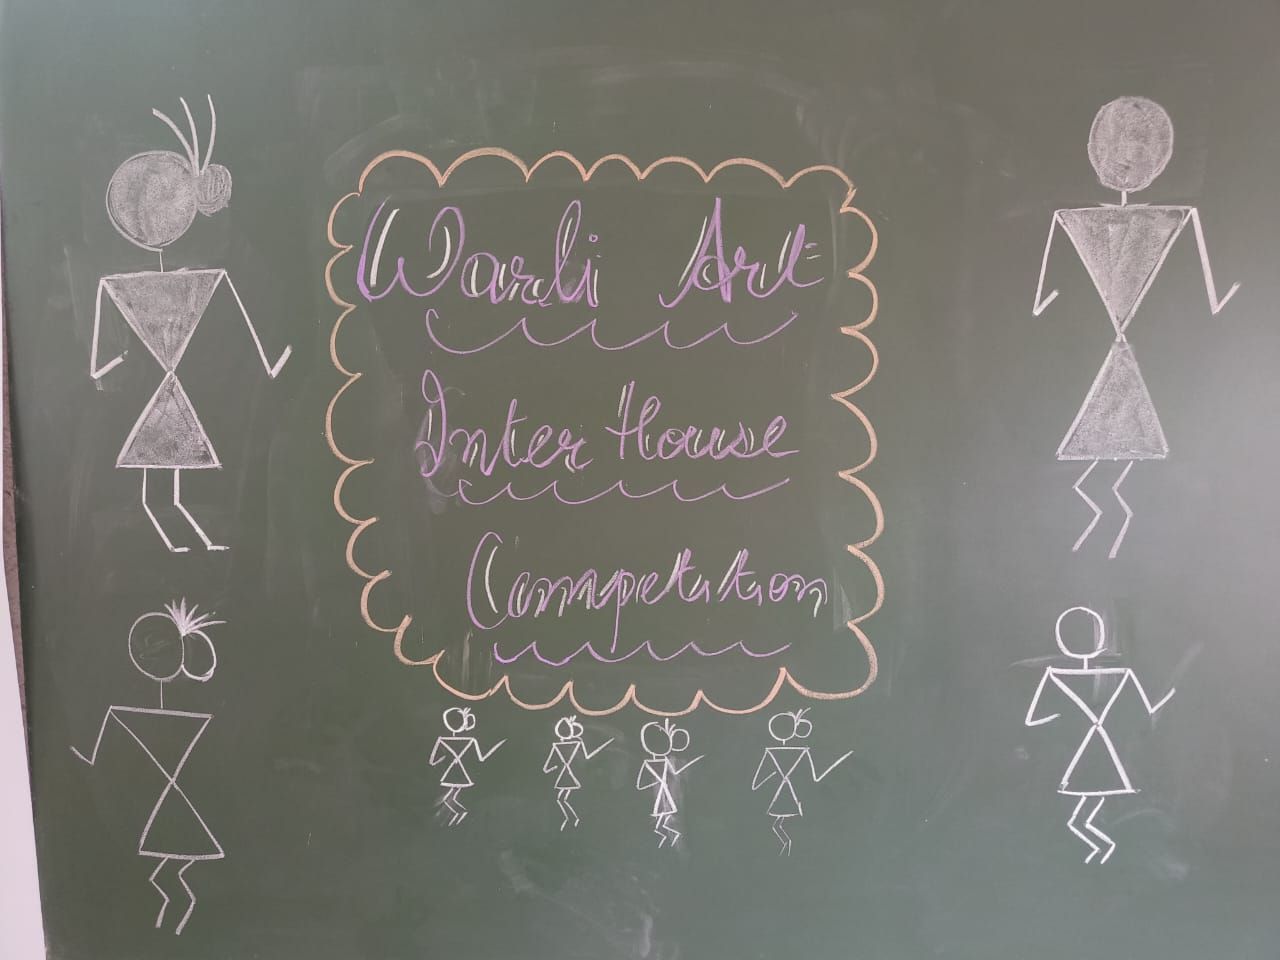 Warli Art
Inter House
Competition